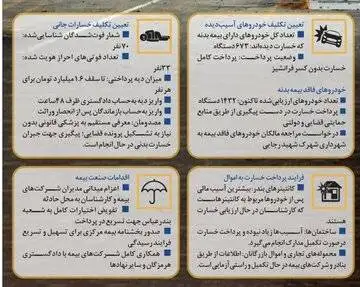 تعیین تکلیف خودروهای آسیب‌دیده
■ تعداد کل خودروهای دارای بیمه بدنه
که خسارت دیده‌اند: ۶۷۳ دستگاه
■ وضعیت پرداخت: پرداخت کامل
خسارت بدون کسر فرانشیز
خودروهای فاقد بیمه بدنه
■ تعداد خودروهای ارزیابی شده تاکنون: ۱۴۳۲ دستگاه
■ پرداخت خسارت در دست پیگیری از طریق منابع
حمایتی قضایی و دولتی
■ درخواست مراجعه مالکان خودروهای فاقد بیمه به
شهرداری شهرک شهید رجایی
تعیین تکلیف خسارات جانی
■ شمار فوت‌شدگان شناسایی شده:
۷۰ نفر
■ تعداد فوتی‌های احراز هویت شده:
۳۳ نفر
■ میزان دیه پرداختی: تا سقف ۱.۶ میلیارد تومان برای
هر نفر
■ واریز دیه به حساب دادگستری ظرف ۴۸ ساعت
■ واریز به حساب بازماندگان پس از انحصار وراثت
■ مصدومان: معرفی مستقیم به پزشکی قانونی بدون
نیاز به تشکیل پرونده قضایی؛ پیگیری جهت جبران
خسارت بدنی در حال انجام است.
فرایند پرداخت خسارت به اموال
■ کانتینرهای بندر: بیشترین آسیب مالی
پس از خودروها مربوط به کانتینرهاست
که کارشناسان در حال ارزیابی خسارت
هستند
■ ساختمان‌ها: آسیب‌ها زیاد نبوده و پرداخت خسارت
درصورت تکمیل مدارک انجام می‌گیرد.
■ محموله‌های تجاری و اموال بازرگانان: اطلاعات از طریق
بندر و شرکت‌های بیمه در حال تکمیل و راستی آزمایی است.
اقدامات صنعت بیمه
■ اعزام میدانی مدیران شرکت‌های
بیمه و کارشناسان به محل حادثه
■ تفویض اختیارات کامل به شعبه
بندرعباس جهت تسریع در پرداخت
■ صدور بخشنامه بیمه مرکزی برای تسهیل و تسریع
فرایند رسیدگی
■ همکاری کامل شرکت‌های بیمه با دادگستری
هرمزگان و سایر نهادها